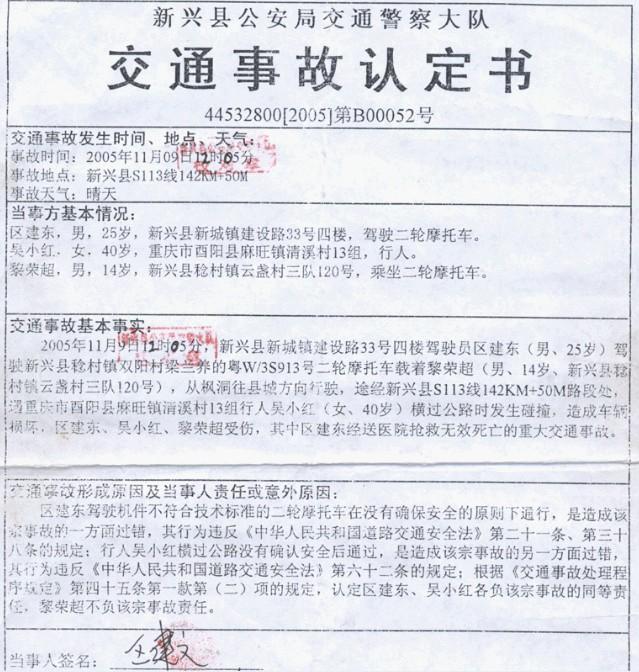 新兴县公安局交通警察大队
交通事故认定书
44532800[2005]第B00052号
交通事故发生时间、地点、天气:
事故时间: 2005年11月09日12时05分
事故地点: 新兴县S113线142KM+50M
事故天气: 晴天
当事方基本情况:
区建东, 男, 25岁, 新兴县新城镇建设路33号四楼, 驾驶二轮摩托车。
吴小红, 女, 40岁, 重庆市酉阳县麻旺镇清溪村13组, 行人。
黎荣超, 男, 14岁, 新兴县稔村镇云盏村三队120号, 乘坐二轮摩托车。
交通事故基本事实:
2005年11月9日12时05分, 新兴县新城镇建设路33号四楼驾驶员区建东 (男、25岁) 驾
驶新兴县稔村镇双阳村梁兰养的粤W/3S913号二轮摩托车载着黎荣超 (男、14岁、新兴县稔
村镇云盏村三队120号), 从枫洞往县城方向行驶, 途经新兴县S113线142KM+50M路段处,
遇重庆市酉阳县麻旺镇清溪村13组行人吴小红 (女、40岁) 横过公路时发生碰撞, 造成车辆
损坏, 区建东、吴小红、黎荣超受伤, 其中区建东经送医院抢救无效死亡的重大交通事故。
交通事故形成原因及当事人责任或意外原因:
区建东驾驶机件不符合技术标准的二轮摩托车在没有确保安全的原则下通行, 是造成该
宗事故的一方面过错, 其行为违反《中华人民共和国道路交通安全法》第二十一条、第三十
八条的规定; 行人吴小红横过公路没有确认安全后通过, 是造成该宗事故的另一方面过错,
其行为违反《中华人民共和国道路交通安全法》第六十二条的规定; 根据《交通事故处理程
序规定》第四十五条第一款第 (二) 项的规定, 认定区建东、吴小红各负该宗事故的同等责
任, 黎荣超不负该宗事故责任。
当事人签名: